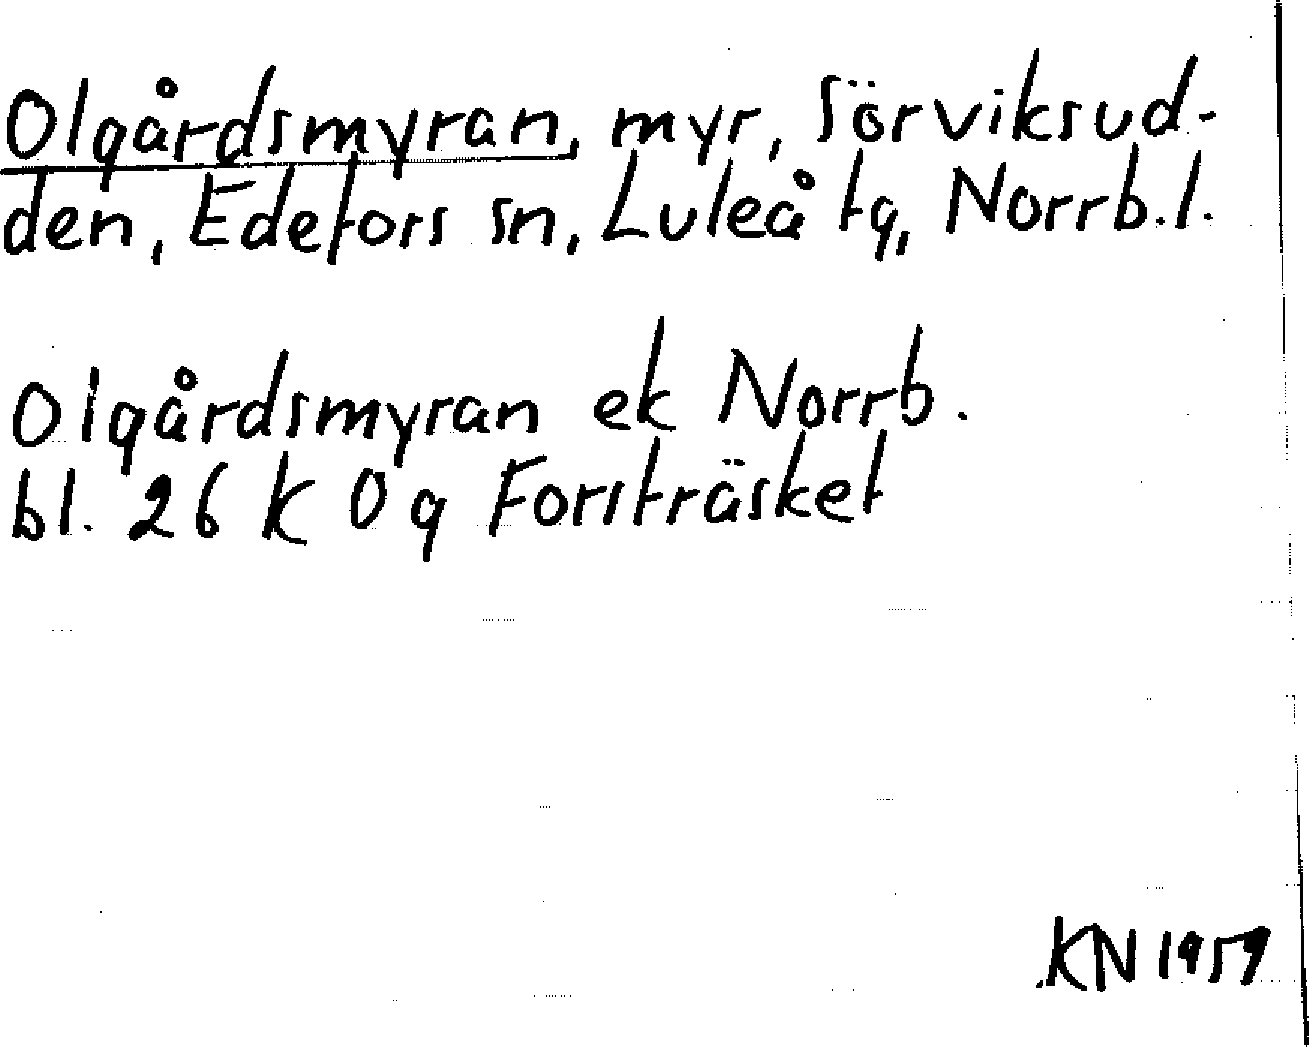 Olgårdsmyran, myr, Sörviksud-
den, Edefors sn, Luleå tg, Norrb.l.
Olgårdsmyran ek Norrb.
bl. 26 K 0 g Forsträsket
KN 1959